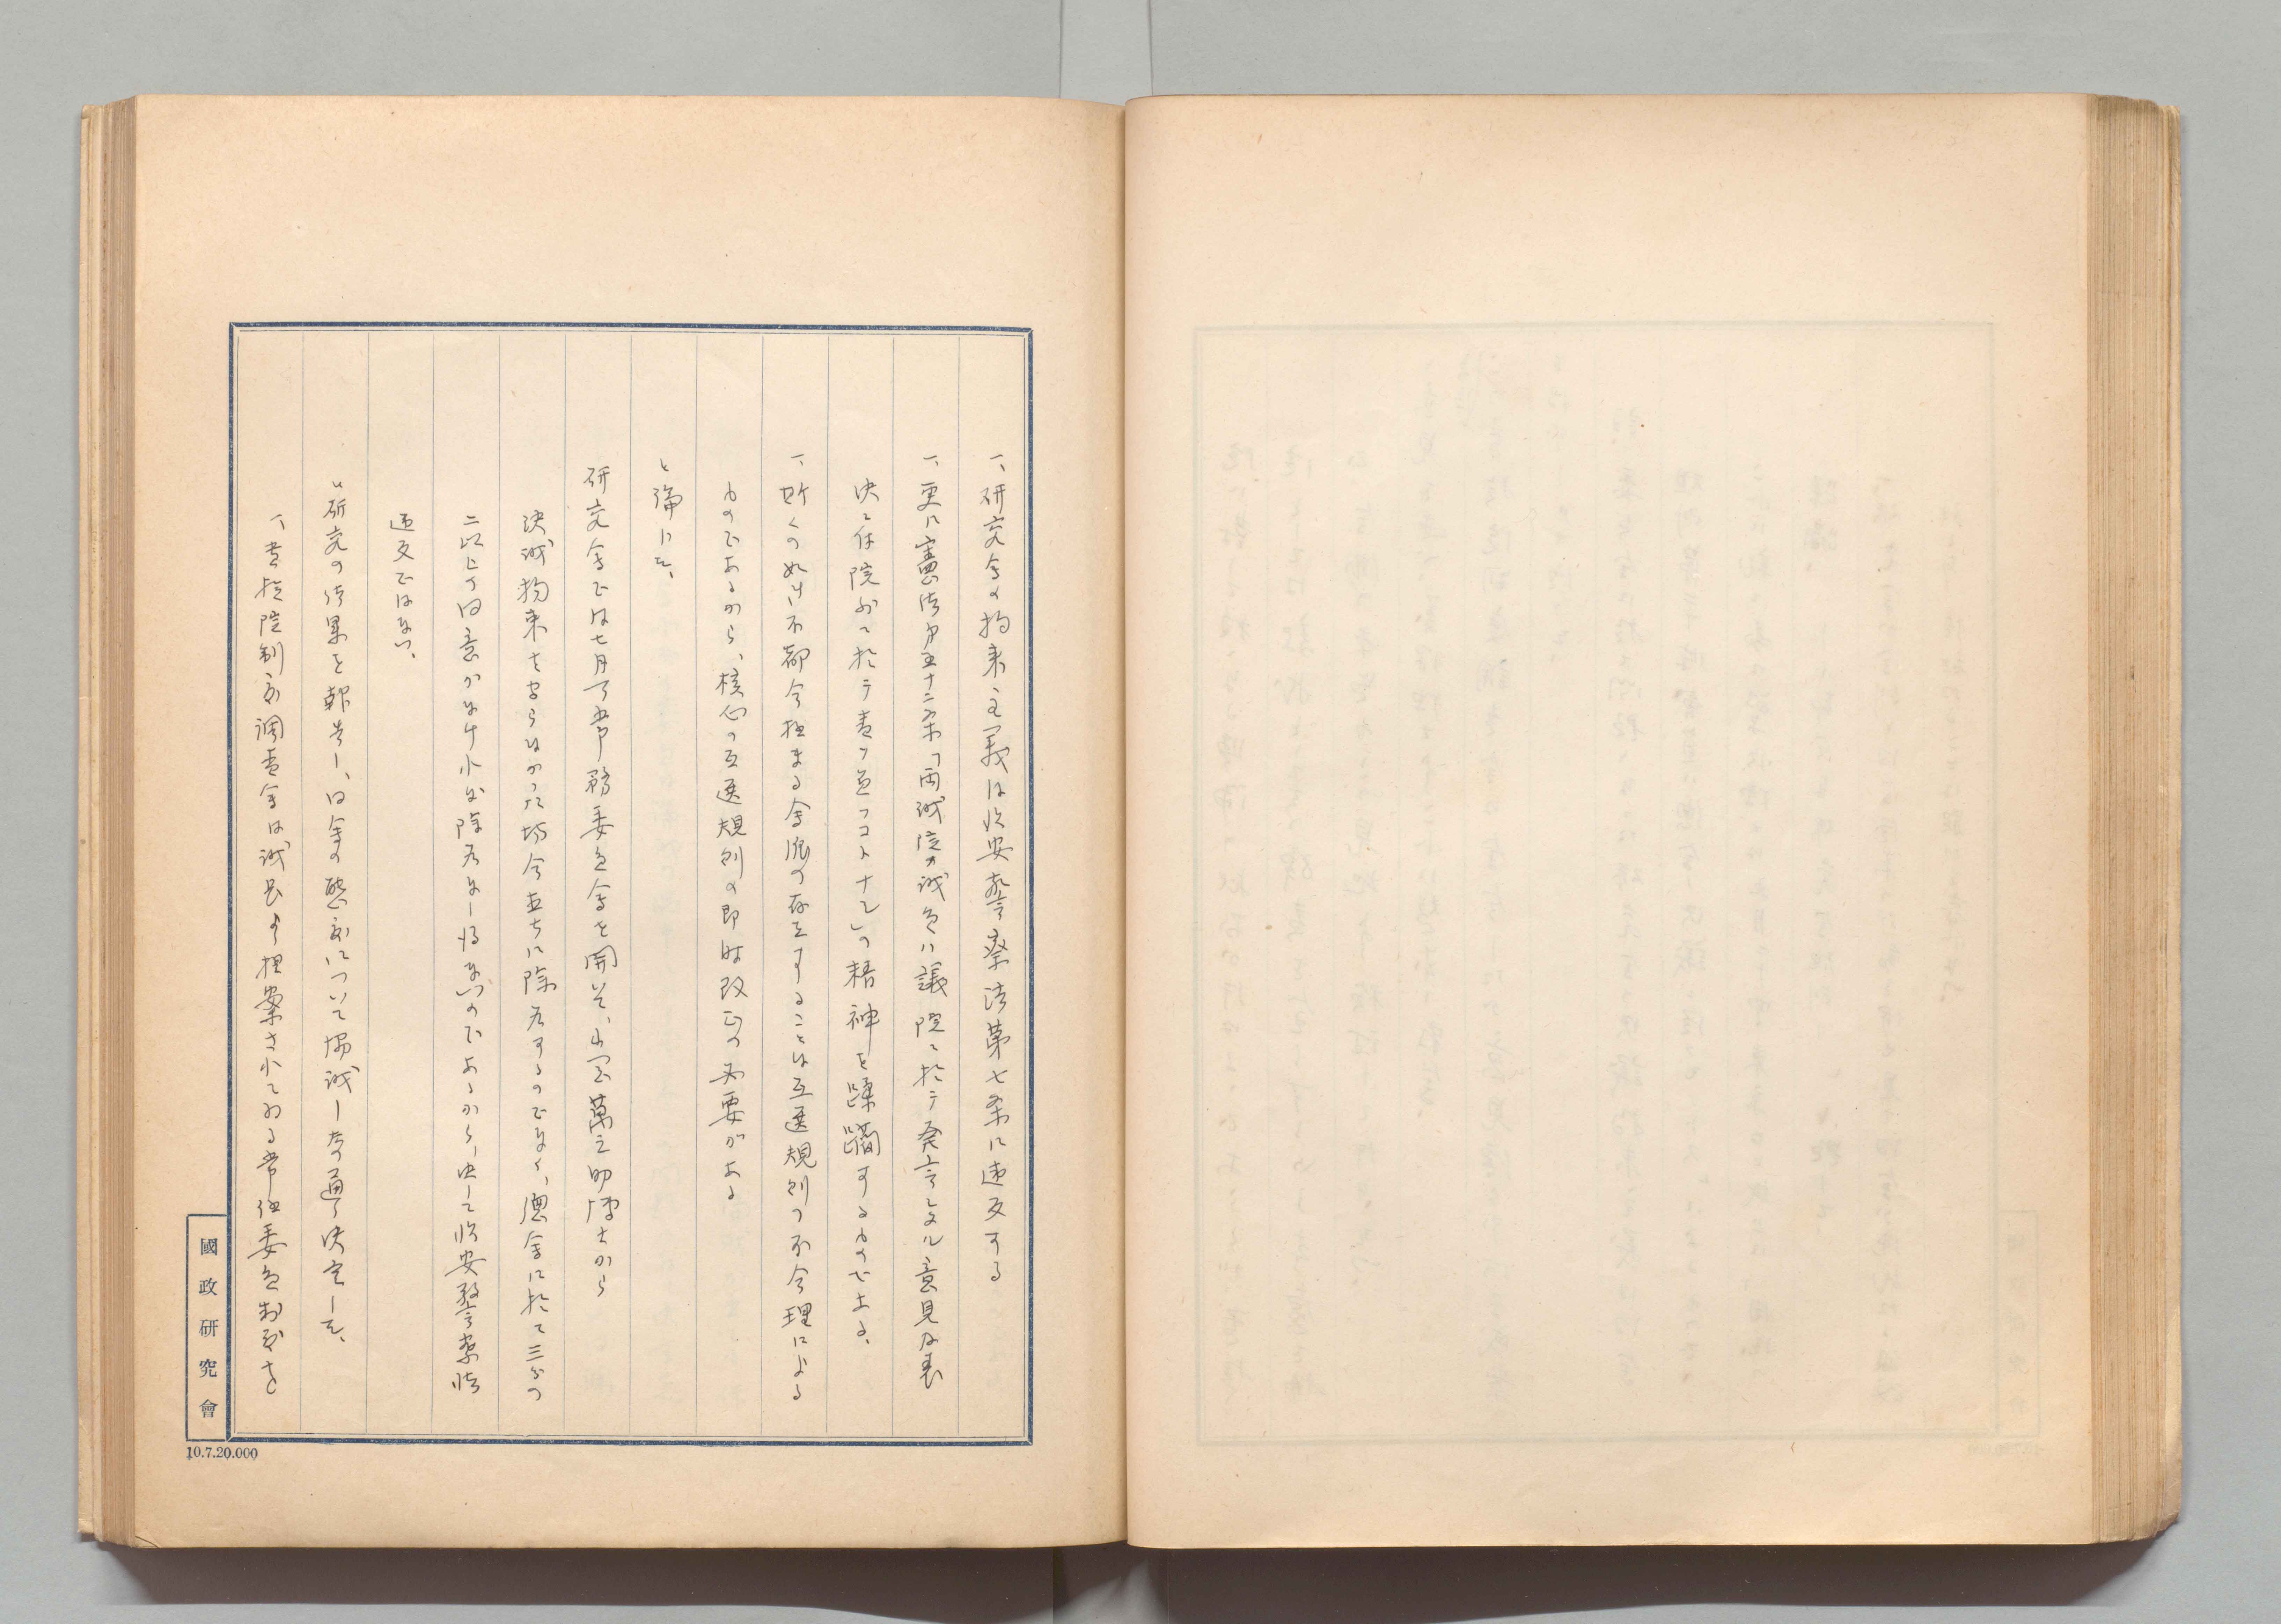 一、研究会の拘束主義は治安警察法第七条に違反する
一、更に憲法第五十二条「両議院ノ議員ハ議院ニ於テ発言シタル意見及表
決ニ付院外ニ於テ責ヲ負フコトナシ」の精神を蹂躙するものである、
一、斯くの如き不都合極まる会派の存在することは互選規則の不合理による
ものであるから、核心の互選規則の即時改正の必要がある
と論じた、
研究会では七月　常務委員会を開いて、小　萬之助博士から
決議拘束を守らなかった場合直ちに除名するのでなく、総会に於て三分の
二以上の同意がなければ除名なし得ないのであるから、決して治安警察法
違反ではない、
と研究の結果を報告し、同会の態度について協議し左の通り決定した、
一、貴族院制度調査会は議長より提案されてゐる常任委員制度を
國政研究會
10.7.20.000